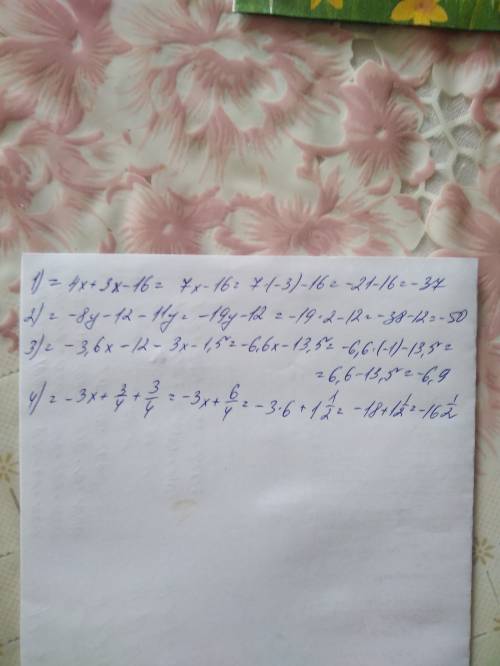 1) = 4x+3x-16 = 7x-16 = 7·(-3)-16 = -21-16 = -37
2) = -8y-12-11y = -19y-12 = -19·2-12 = -38-12 = -50
3) = -3,6x-12-3x-1,5 = -6,6x-13,5 = -6,6·(-1)-13,5 =
= 6,6-13,5 = -6,9
4) = -3x+3/4+3/4 = -3x+6/4 = -3·6+1 1/2 = -18+1 1/2 = -16 1/2